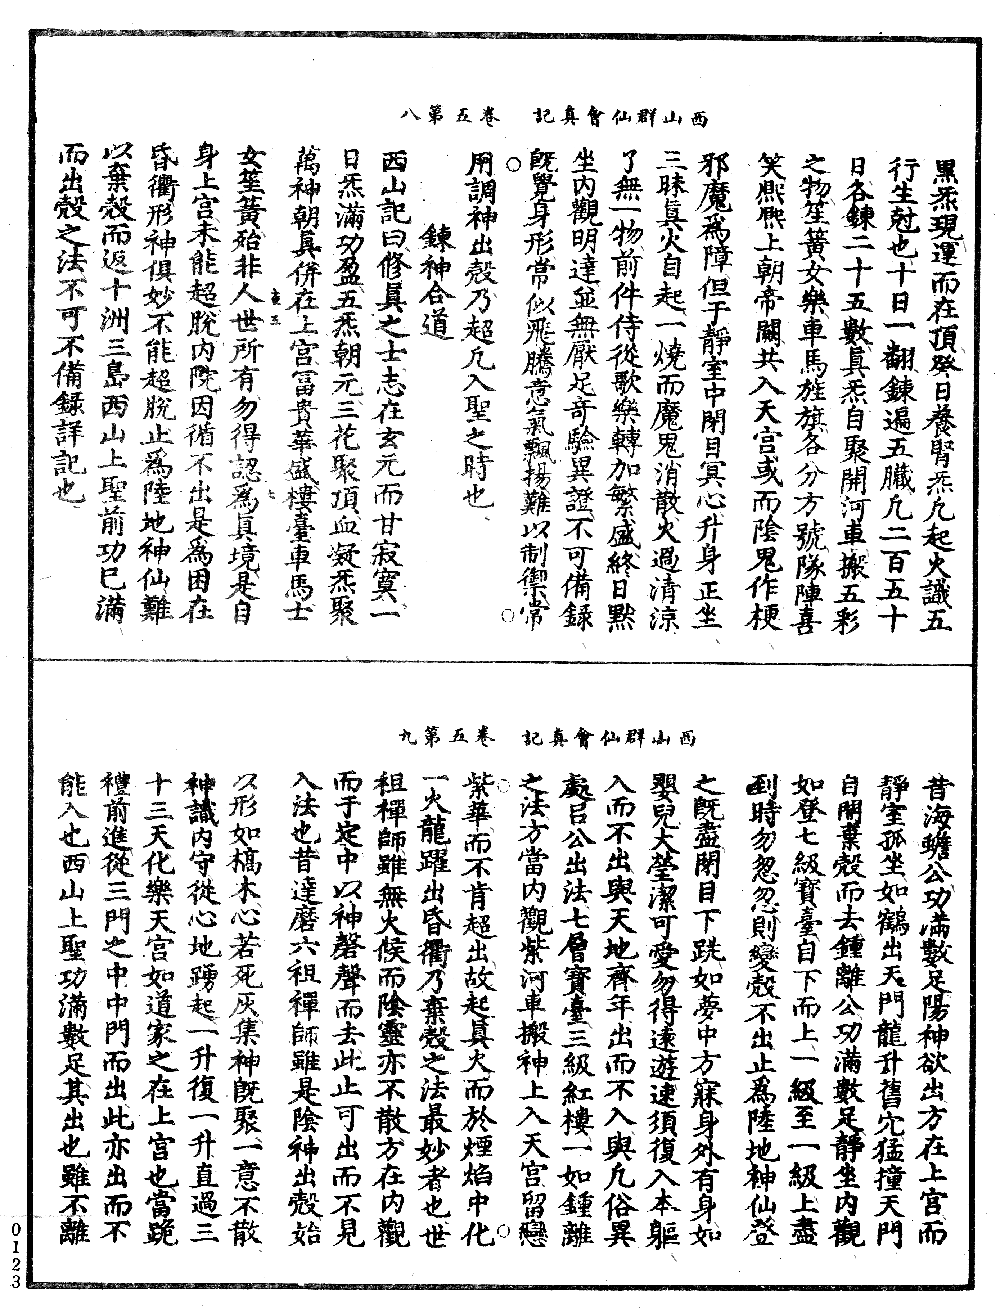 西山群仙會真記　卷五第八
黑炁現運而在頂癸日養腎炁凡起火識五
行生尅也十日一翻鍊遍五臟凡二百五十
日各鍊二十五數眞炁自聚開河車搬五彩
之物笙簧女樂車馬旌旗各分方號隊陣喜
笑熙熙上朝帝闕共入天宮或而陰鬼作梗
邪魔爲障但于靜室中閉目冥心升身正坐
三昧眞火自起一燒而魔鬼消散火過清涼
了無一物前件侍從歌樂轉加繁盛終日默
坐內觀明達並無厭足奇驗異證不可備録
旣覺身形常似飛騰意氣飄揚難以制禦常
用調神出殼乃超凡入聖之時也
鍊神合道
西山記曰修眞之士志在玄元而甘寂寞一
日炁滿功盈五炁朝元三花聚頂血凝炁聚
萬神朝眞併在上宮富貴華盛樓臺車馬士
女笙簧殆非人世所有勿得認爲眞境是自
身上宮未能超脫內院因循不出是爲困在
昏衢形神俱妙不能超脫止爲陸地神仙難
以棄殼而返十洲三島西山上聖前功已滿
而出殼之法不可不備録詳記也
西山群仙會真記　卷五第九
昔海蟾公功滿數足陽神欲出方在上宮而
靜室孤坐如鶴出天門龍升舊穴猛撞天門
自開棄殼而去鍾離公功滿數足靜坐內觀
如登七級寶臺自下而上一級至一級上盡
到時勿忽忽則變殼不出止爲陸地神仙登
之旣盡閉目下跳如夢中方寐身外有身如
嬰兒大瑩潔可愛勿得遠遊速須復入本軀
入而不出與天地齊年出而不入與凡俗異
處呂公出法七層寶臺三級紅樓一如鍾離
之法方當內觀紫河車搬神上入天宮留戀
紫華而不肯超出故起眞火而於煙焰中化
一火龍躍出昏衢乃棄殼之法最妙者也世
祖禪師雖無火候而陰靈亦不散方在內觀
而于定中以神磬聲而去此止可出而不見
入法也昔達磨六祖禪師雖是陰神出殼始
以形如槁木心若死灰集神旣聚一意不散
神識內守從心地踴起一升復一升直過三
十三天化樂天宮如道家之在上宮也當跪
禮前進從三門之中中門而出此亦出而不
能入也西山上聖功滿數足其出也雖不離
0123